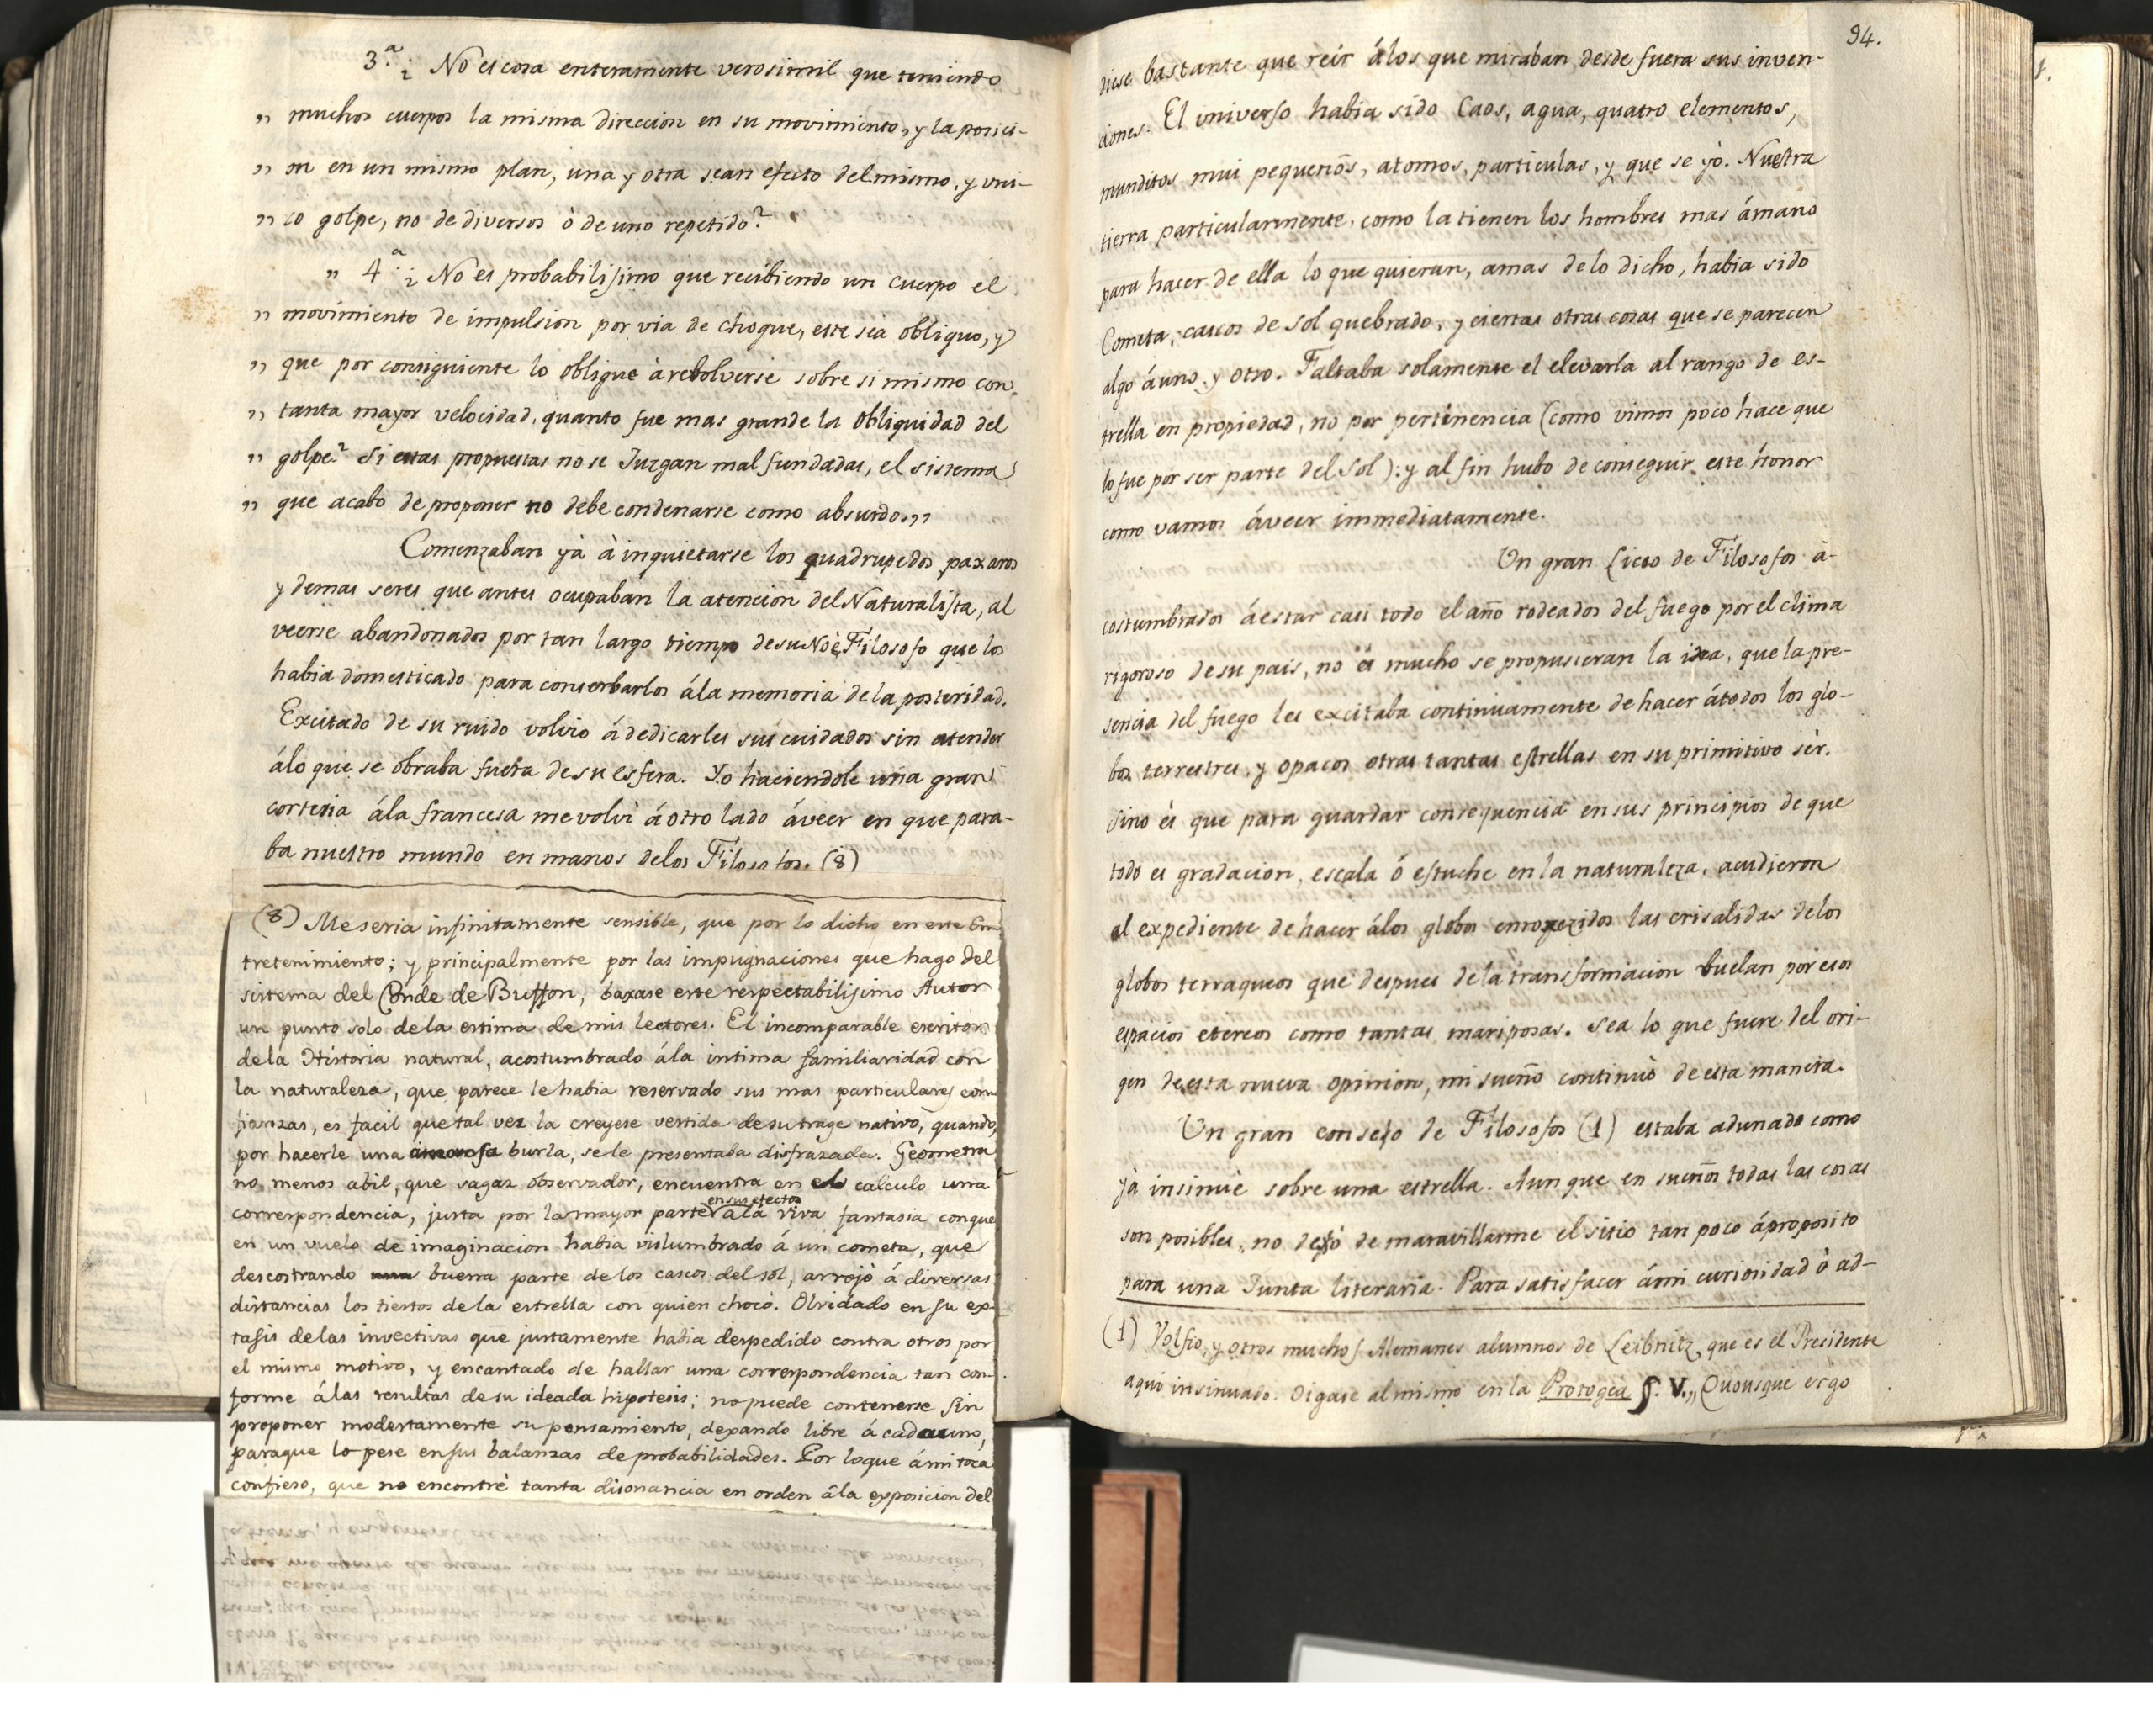 3.ª ¿ No es cosa enteramente verosimil que teniendo
„ muchos cuerpos la misma direccion en su movimiento, y la posici-
„ on en un mismo plan, una y otra sean efecto del mismo, y uni-
„ co golpe, no de diversos ò de uno repetido?
„ 4.ª ¿ No es probabilisimo que recibiendo un cuerpo el
„ movimiento de impulsion por via de choque, este sea obliquo, y
„ que por consiguiente lo obligue à rebolverse sobre si mismo con
„ tanta mayor velocidad, quanto fue mas grande la obliquidad del
„ golpe? Si estas propuestas no se Juzgan mal fundadas, el sistema
„ que acabo de proponer no debe condenarse como absurdo.„
Comenzaban yà à inquietarse los quadrupedos paxaros
y demas seres que antes ocupaban la atencion del Naturalista, al
veerse abandonados por tan largo tiempo de su Noè Filosofo que los
habia domesticado para conserbarlos á la memoria de la posteridad.
Excitado de su ruido volvio á dedicarles sus cuidados sin atender
á lo que se obraba fuera de su esfera. Yo haciendole una gran
cortesia á la francesa me volvì á otro lado á veer en que para-
ba nuestro mundo en manos de los Filosofos. (8)
(8) Me seria infinitamente sensible, que por lo dicho en este En-
tretenimiento; y principalmente por las impugnaciones que hago del
sistema del Conde de Buffon, baxase este respectabilisimo Autor
un punto solo de la estima de mis lectores. El incomparable escritor
de la Historia natural, acostumbrado á la intima familiaridad con
la naturaleza, que parece le habia reservado sus mas particulares con-
fianzas, es facil que tal vez la creyese vestida de su trage nativo, quando,
por hacerle una burla, se le presentaba disfrazada. Geometra
no menos abil, que sagaz observador, encuentra en el calculo una
correspondencia, justa por la mayor parte en sus efectos a la viva fantasia con que
en un vuelo de imaginacion habia vislumbrado á un cometa, que
descostrando buena parte de los cascos del sol, arrojò á diversas
distancias los tiestos de la estrella con quien chocò. Olvidado en su ex-
tasis de las invectivas que justamente habia despedido contra otros por
el mismo motivo, y encantado de hallar una correspondencia tan con-
forme á las resultas de su ideada hipotesis; no puede contenerse sin
proponer modestamente su pensamiento, dexando libre á cada uno,
para que lo pese en sus balanzas de probabilidades. Por lo que á mi toca
confieso, que no encontrè tanta disonancia en orden á la exposicion del
94.
diese bastante que reír á los que miraban desde fuera sus inven-
ciones. El universo habia sido Caos, agua, quatro elementos,
munditos mui pequeños, atomos, particulas, y que se yò. Nuestra
tierra particularmente, como la tienen los hombres mas á mano
para hacer de ella lo que quieran, amas de lo dicho, habia sido
Cometa, cascos de Sol quebrado, y ciertas otras cosas que se parecen
algo á uno y otro. Faltaba solamente el elevarla al rango de es-
trella en propiedad, no por pertinencia (como vimos poco hace que
lo fue por ser parte del Sol): y al fin hubo de conseguir este honor
como vamos á veer immediatamente.
Un gran Liceo de Filosofos à-
costumbrados á estar casi todo el año rodeados del fuego por el clima
rigoroso de su pais, no es mucho se propusieran la idea, que la pre-
sencia del fuego les excitaba continuamente de hacer á todos los glo-
bos terrestres, y opacos otras tantas estrellas en su primitivo sèr.
Sino es que para guardar consequencia en sus principios de que
todo es gradacion, escala ó estuche en la naturaleza, acudieron
al expediente de hacer á los globos enroxezidos las crisalidas de los
globos terraqueos que despues de la transformacion buelan por esos
espacios etereos como tantas mariposas. Sea lo que fuere del ori-
gen de esta nueva opinion, mi sueño continuò de esta manera.
Un gran consejo de Filosofos (1) estaba adunado como
yà insinuè sobre una estrella. Aun que en sueños todas las cosas
son posibles, no dejò de maravillarme el sitio tan poco á proposito
para una Junta literaria. Para satisfacer á mi curiosidad ò ad-
(1) Volfio, y otros muchos Alemanes alumnos de Leibnitz, que es el Presidente
aqui insinuado. Oigase al mismo en la Protogea §. V.„ Quousque ergo